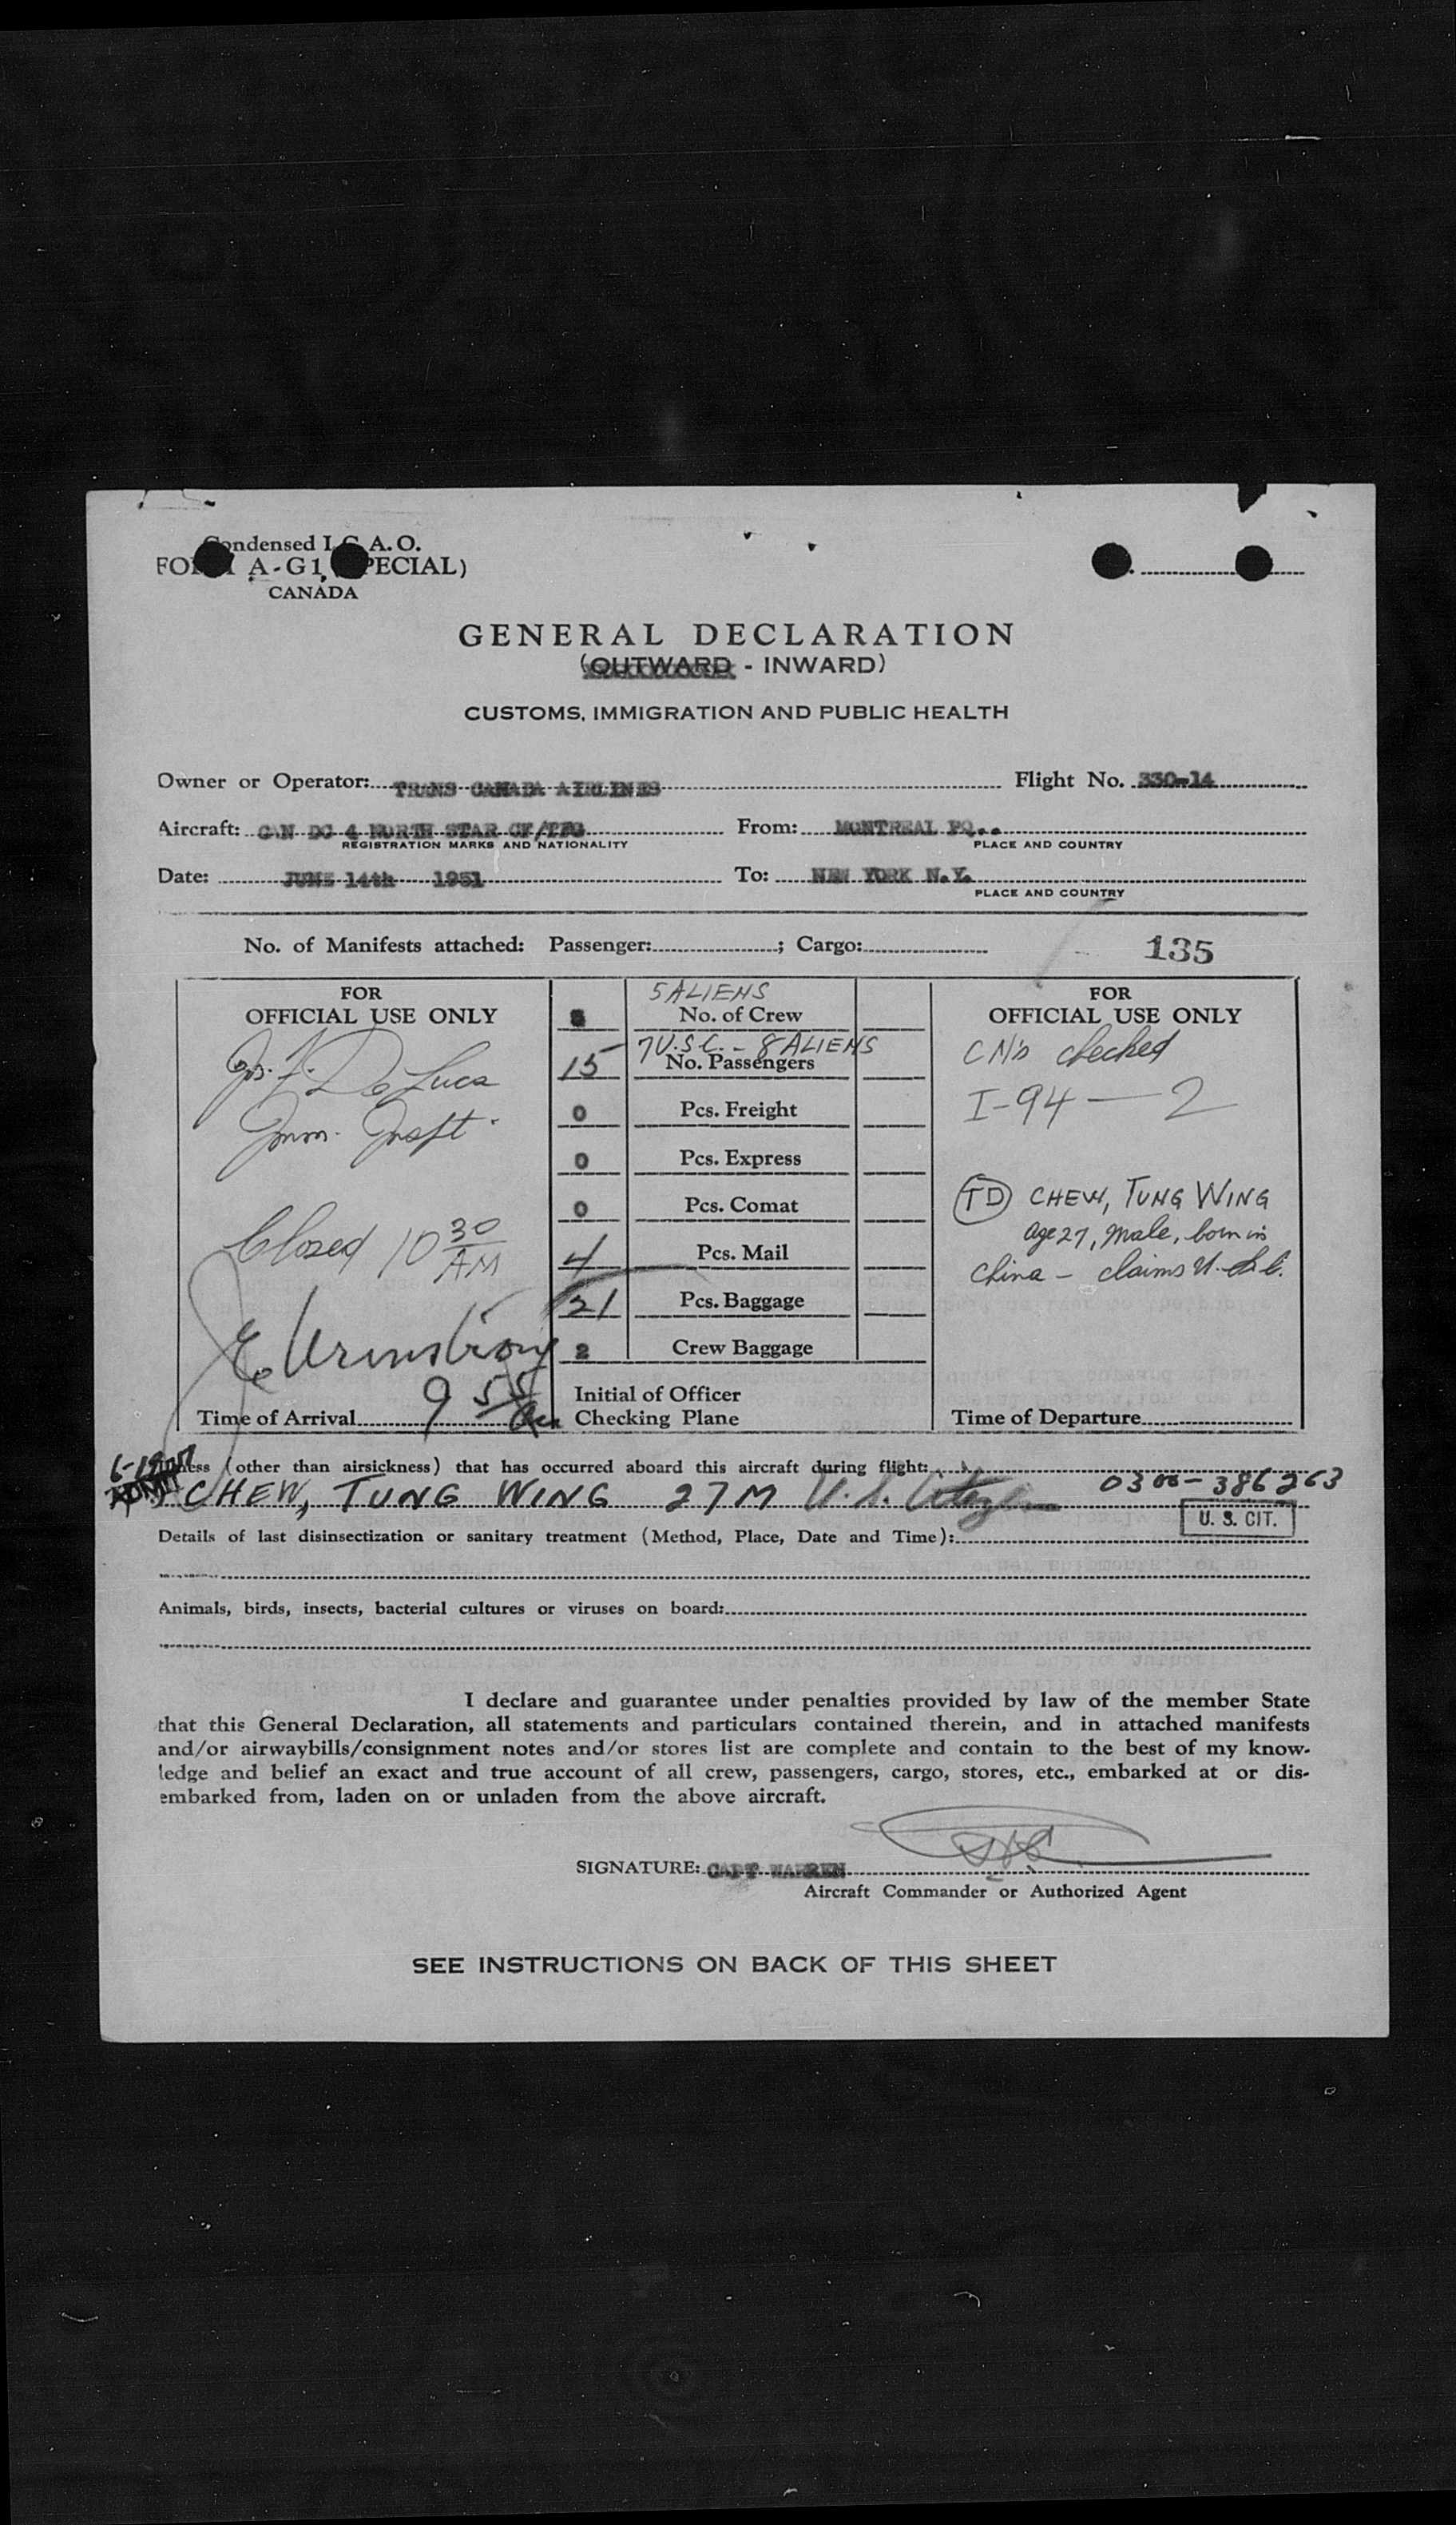 Condensed I.C.A.O.
FORM A-G1 (SPECIAL)
CANADA
GENERAL DECLARATION
(OUTWARD - INWARD)
CUSTOMS, IMMIGRATION AND PUBLIC HEALTH
Owner or Operator: TRANS CANADA AIRLINES Flight No. 330-14
Aircraft: CAN DC 4 NORTH STAR CF/ From: MONTREAL PQ..
REGISTRATION MARKS AND NATIONALITY PLACE AND COUNTRY
Date: JUNE 14th 1951 To: NEW YORK N.Y.
PLACE AND COUNTRY
No. of Manifests attached: Passenger: ; Cargo: 135
FOR
OFFICIAL USE ONLY
Jos. F. De Luca
Imm. Inspt.
Closed 10 30 AM
E. Armstrong
Time of Arrival 9 55
5 ALIENS
5 No. of Crew
7 U.S.C. - 8 ALIENS
15 No. Passengers
0 Pcs. Freight
0 Pcs. Express
0 Pcs. Comat
4 Pcs. Mail
21 Pcs. Baggage
2 Crew Baggage
Initial of Officer
Checking Plane
FOR
OFFICIAL USE ONLY
CN's checked
I-94 — 2
TD CHEW, TUNG WING
age 27, male, born in
China - claims U.S.C.
Time of Departure
Illness (other than airsickness) that has occurred aboard this aircraft during flight:
ADMIT CHEW, TUNG WING 27 M U.S. Citizen 0300-386263
U. S. CIT.
Details of last disinsectization or sanitary treatment (Method, Place, Date and Time):
Animals, birds, insects, bacterial cultures or viruses on board:
I declare and guarantee under penalties provided by law of the member State
that this General Declaration, all statements and particulars contained therein, and in attached manifests
and/or airwaybills/consignment notes and/or stores list are complete and contain to the best of my know-
ledge and belief an exact and true account of all crew, passengers, cargo, stores, etc., embarked at or dis-
embarked from, laden on or unladen from the above aircraft.
SIGNATURE: CAPT WARREN
Aircraft Commander or Authorized Agent
SEE INSTRUCTIONS ON BACK OF THIS SHEET